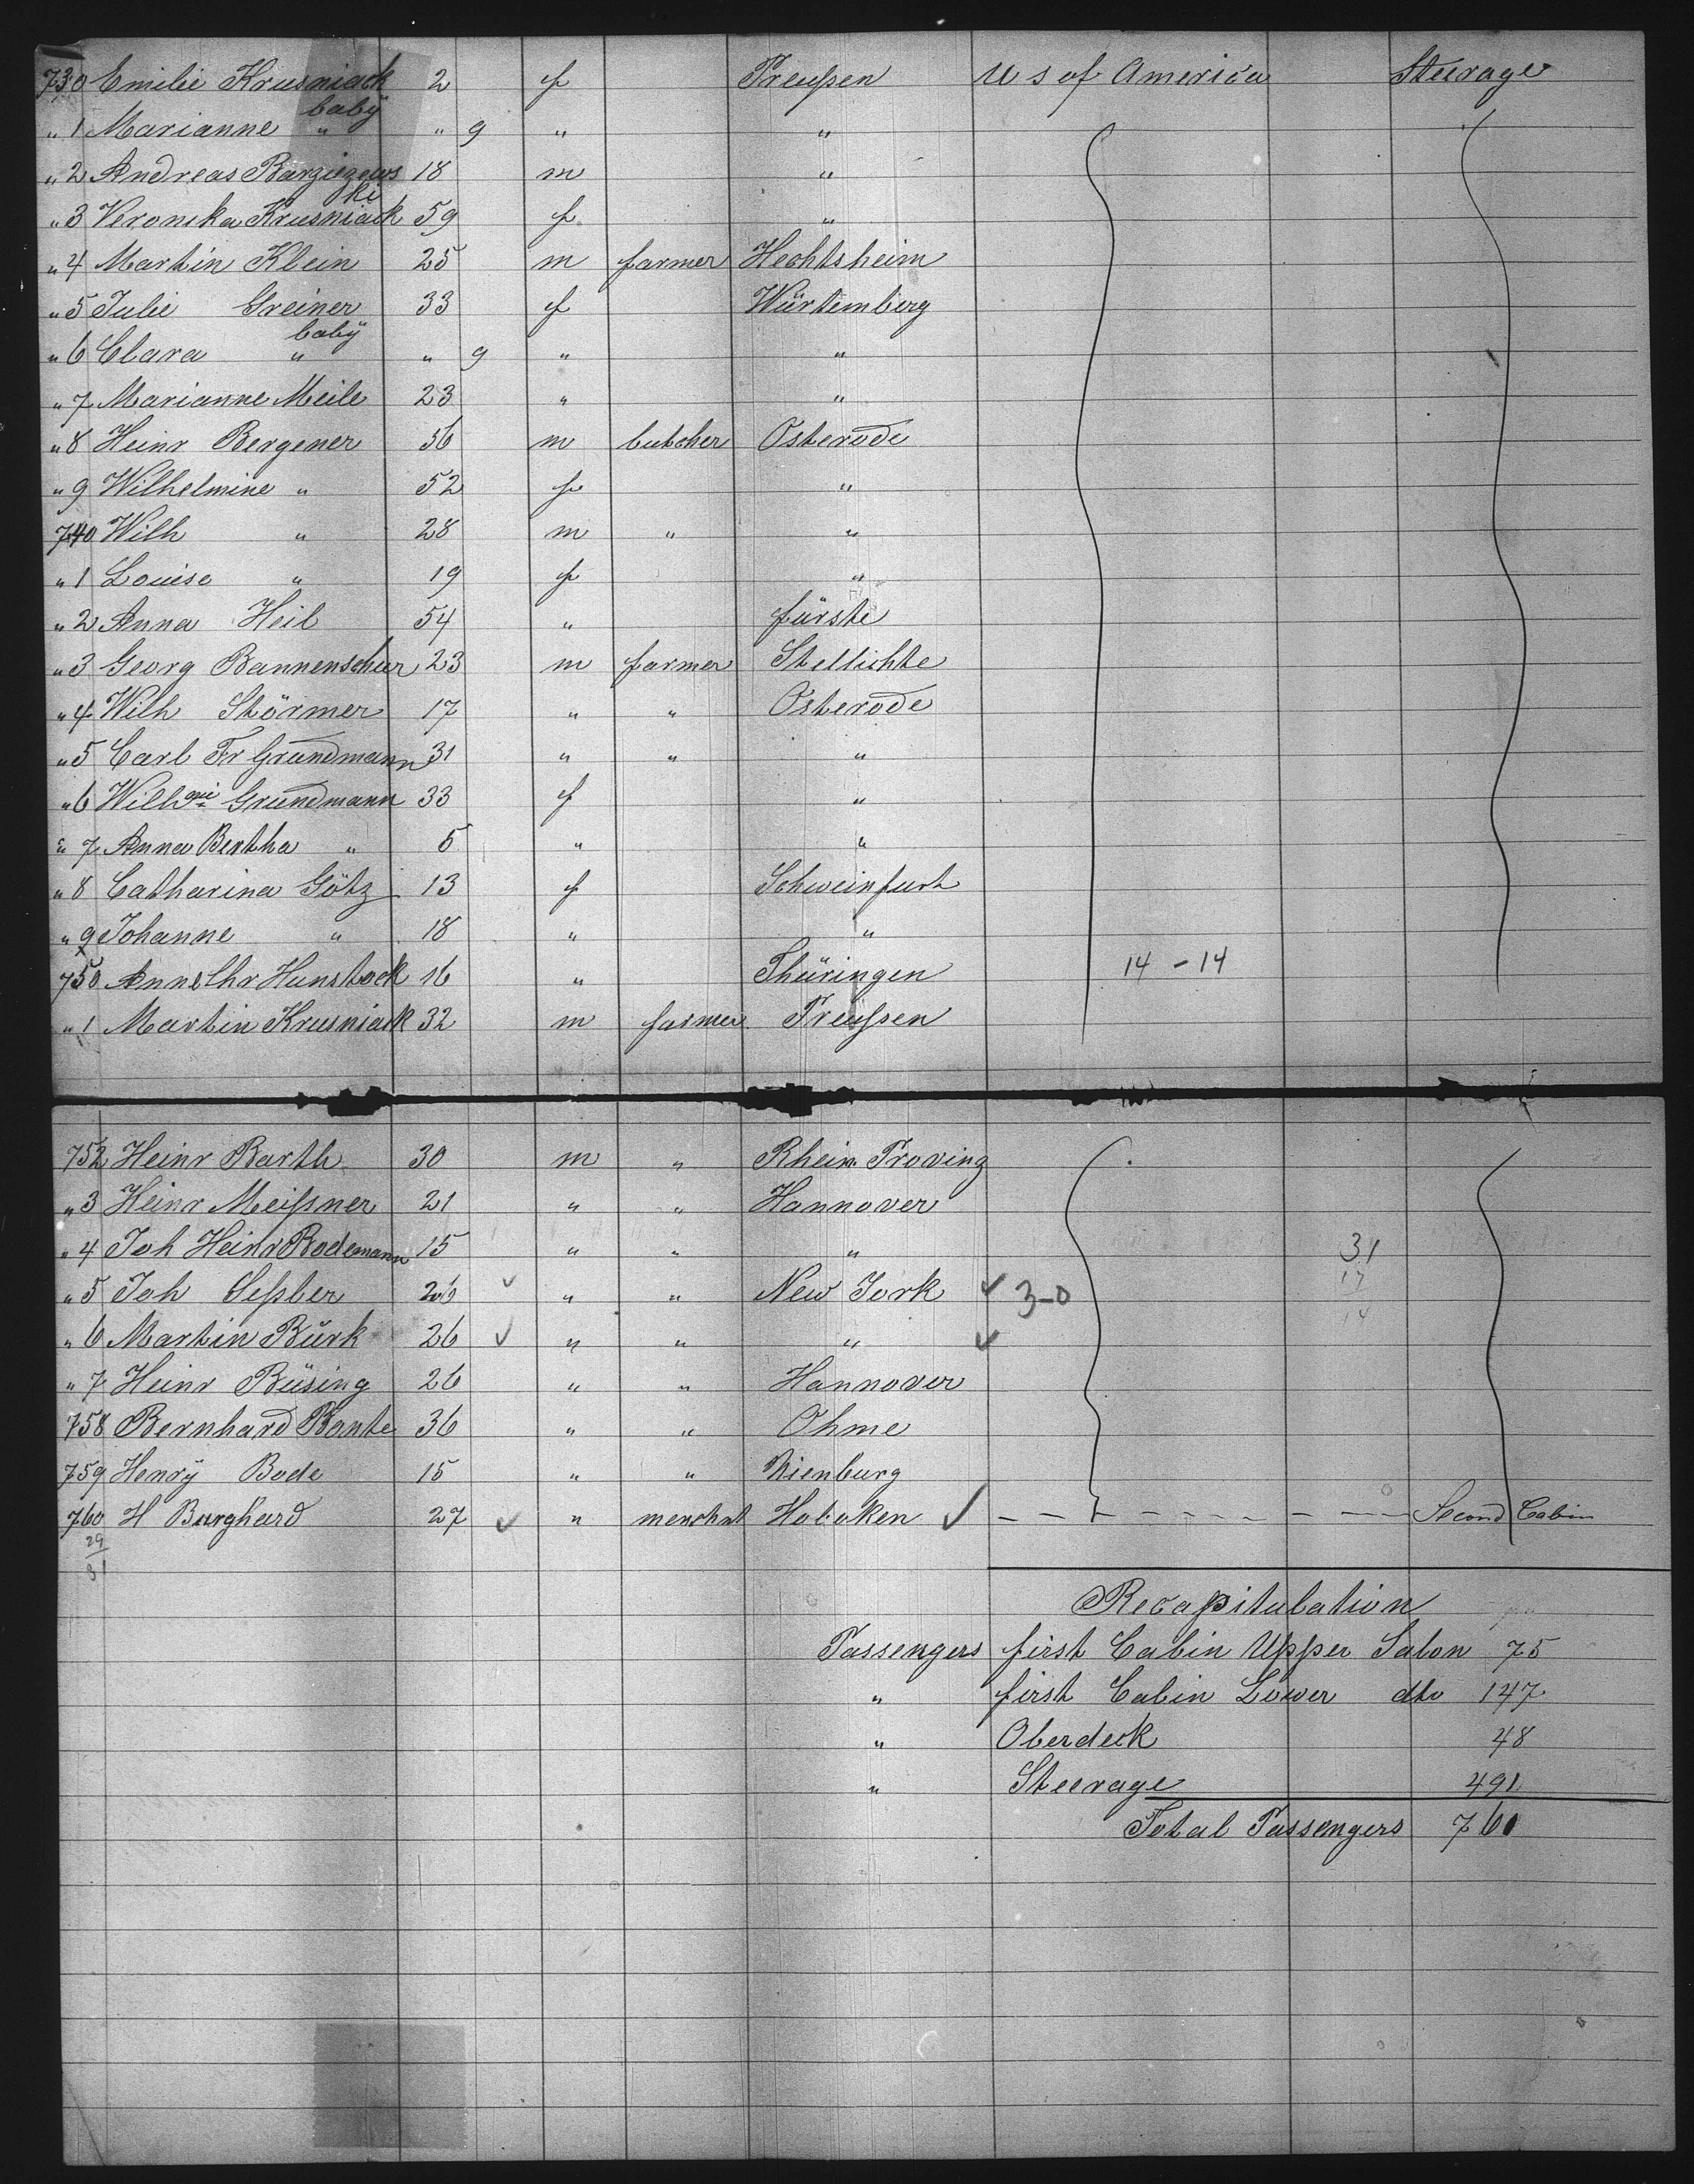 730 Emilie Krusniack 2 f Preußen U S of America Steerage
" 1 Marianne " baby " 9 " "
" 2 Andreas Bargiezewski 18 m "
" 3 Veronika Krusniack 59 f "
" 4 Martin Klein 25 m farmer Hechtsheim
" 5 Julie Greiner 33 f Würtemberg
" 6 Clara " baby " 9 " "
" 7 Marianne Meile 23 " "
" 8 Heinr Bergener 56 m butcher Osterode
" 9 Wilhelmine " 52 f "
740 Wilh " 28 m " "
" 1 Louise " 19 f "
" 2 Anna Heil 54 " Förste
" 3 Georg Bannenschur 23 m farmer Stellichte
" 4 Wilh Störmer 17 " " Osterode
" 5 Carl Fr Grundmann 31 " " "
" 6 Wilhmi Grundmann 33 f "
" 7 Anna Bertha " 5 " "
" 8 Catharina Götz 13 f Schweinfurt
" 9 Johanne " 18 " "
750 Anne Chr Hunstock 16 " Thüringen 14 - 14
" 1 Martin Krusniack 32 m farmer Preußen
752 Heinr Barth 30 m " Rhein Proving
" 3 Heinr Meißner 21 " " Hannover
" 4 Joh Heinr Bodemann 15 " " " 31
" 5 Joh Seßler 26 " " New York 3-0 17
14
" 6 Martin Bürk 26 " " "
" 7 Heinr Büsing 26 " " Hannover
758 Bernhard Bante 36 " " Ohme
759 Henry Bode 15 " " Nienburg
760 H Burghard 27 " merchat Hoboken Second Cabin
29
31
Recapitulation
Passengers first Cabin Upper Salon 75
" first Cabin Lower dto 147
" Oberdeck 48
" Steerage 491
Total Passengers 760